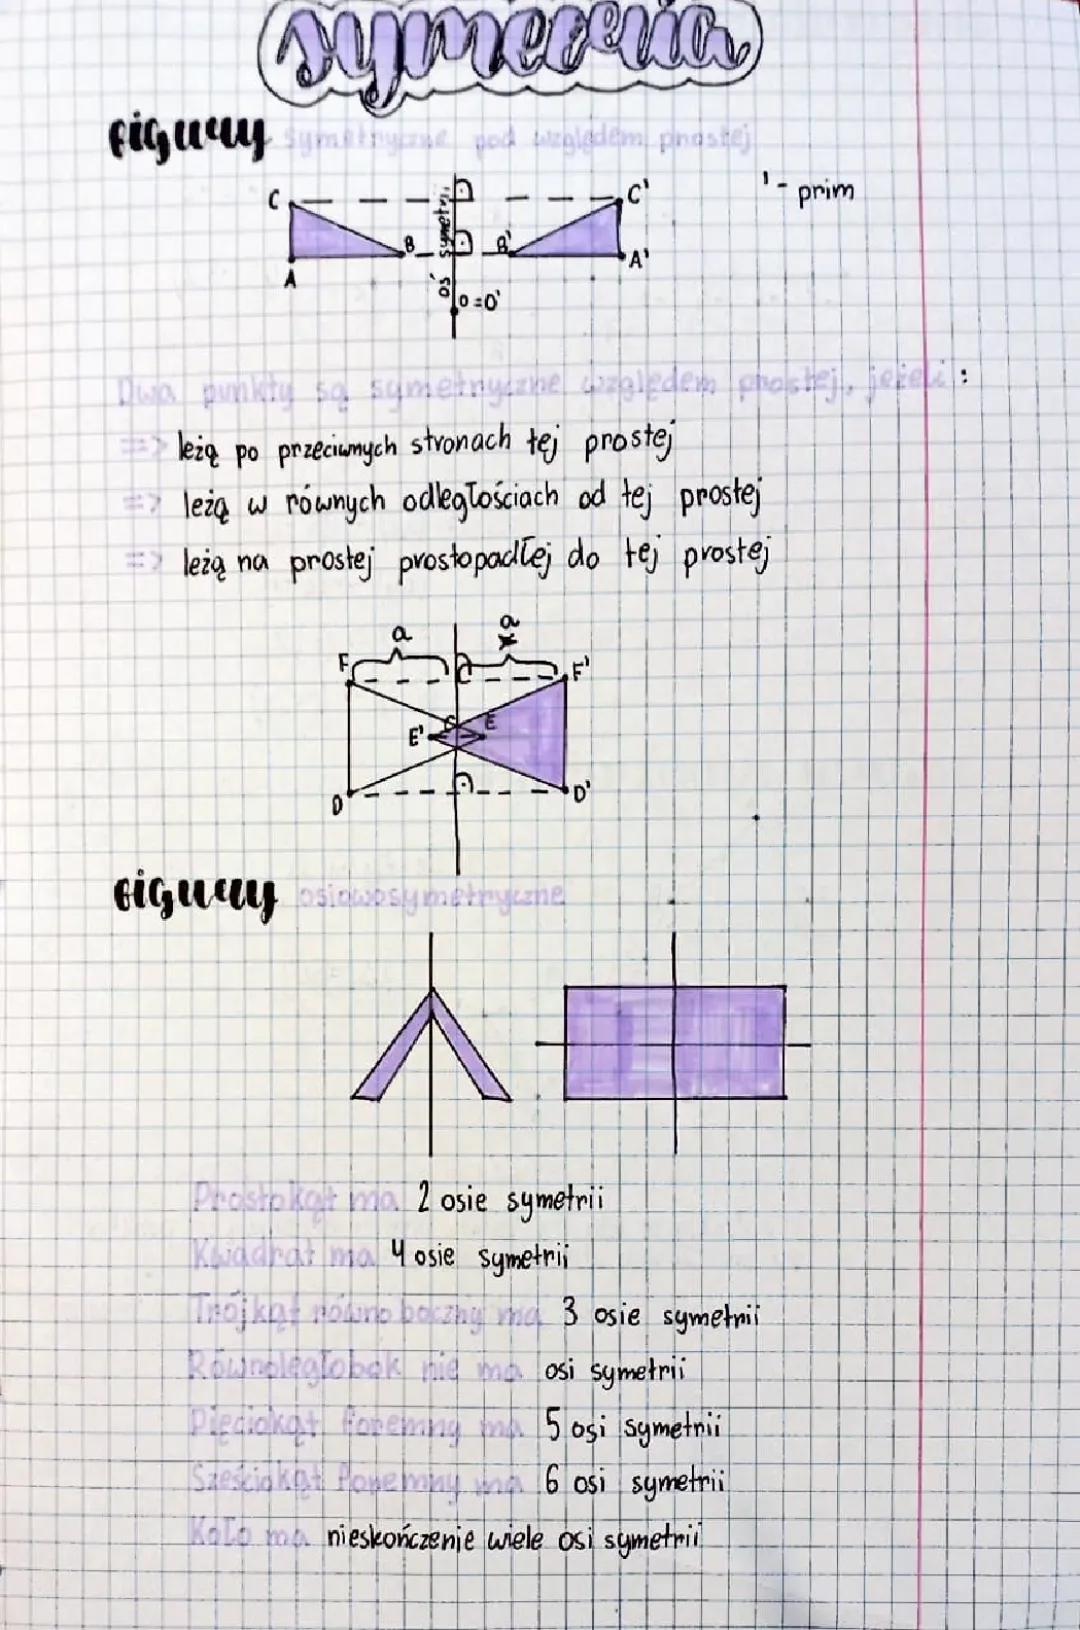 symetria
figury symetryczne pod względem prostej
C C' ' - prim
B B'
A A'
oś symetrii
O = O'
Dwa punkty są symetryczne względem prostej, jeżeli :
=> leżą po przeciwnych stronach tej prostej
=> leżą w równych odległościach od tej prostej
=> leżą na prostej prostopadłej do tej prostej
a a
F F'
E' G E
D D'
figury osiowosymetryczne
Prostokąt ma 2 osie symetrii
Kwadrat ma 4 osie symetrii
Trójkąt równoboczny ma 3 osie symetrii
Równoległobok nie ma osi symetrii
Pięciokąt foremny ma 5 osi symetrii
Sześciokąt foremny ma 6 osi symetrii
Koło ma nieskończenie wiele osi symetrii